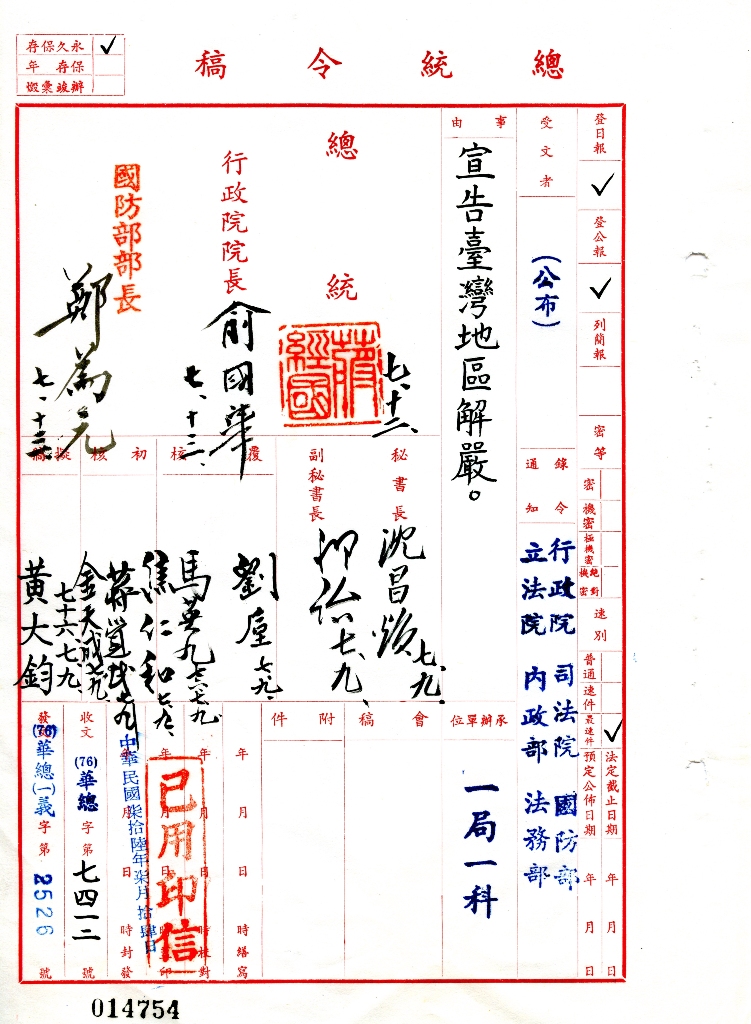 總統令稿
永久保存 ✓
保存 年
辦竣彙燬
登日報 ✓
登公報 ✓
列簡報
密等
密
機密
極機密
絕對機密
速別
普通
速件
最速件 ✓
法定截止日期 年 月 日
預定公佈日期 年 月 日
受文者
(公布)
錄令通知
行政院 司法院 國防部
立法院 內政部 法務部
事由
宣告臺灣地區解嚴。
承辦單位
一局一科
總統
蔣經國
七、十二、
行政院院長
俞國華
七、十三、
國防部部長
鄭為元
七、十三、
秘書長
沈昌煥
七、九、
副秘書長
七、九、
覆核
劉垕
七、九、
馬英九
初核
焦仁和
擬稿
金天成
七十六、七、九、
黃大鈞
會稿
附件
年 月 日 時繕寫
年 月 日 時校對
年 月 日 時蓋印
年 月 日 時封發
已用印信
中華民國柒拾陸年柒月拾肆日
收文 (76)華總 字第 七四一二 號
發文 (76)華總(一)義 字第 2526 號
014754